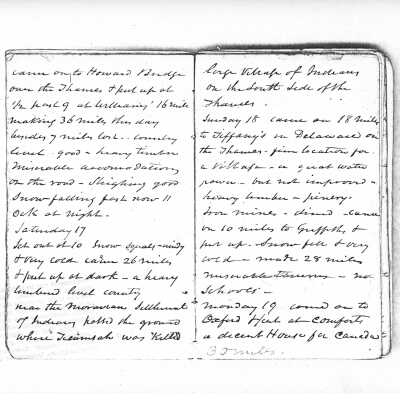 came on to Howard Bridge
over the Thames & put up at
1/2 past 9 at Williams' 16 mile
making 36 miles this day
besides 7 miles lost - country
level - good - heavy timber
Miserable accomodations
on the road - Sleighing good
Snow falling fast now 11
Ock at night.
Saturday 17
Set out at 10 Snow squals - windy
& very cold came 26 miles
& put up at dark - a heavy
timbered level country
near the Moravian Settlement
of Indians passed the ground
where Tecumsah was Killed
large Village of Indians
on the South Side of the
Thames.
Sunday 18 came on 18 miles
to Tiffany's in Delaware on
the Thames - fine location for
a Village - a great water
power - but not improved -
heavy timber - pinery -
Iron mines - dined - came
on 10 miles to Griffith's &
put up. Snow fell & very
cold - made 28 miles
miserable taverns - no
Schools -
Monday 19 came on to
Oxford & put at Comforts
a decent House for Canada
35 miles.